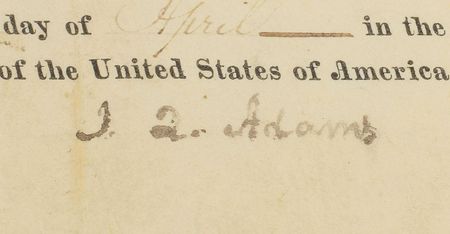 day of April in the
of the United States of America
J. Q. Adams